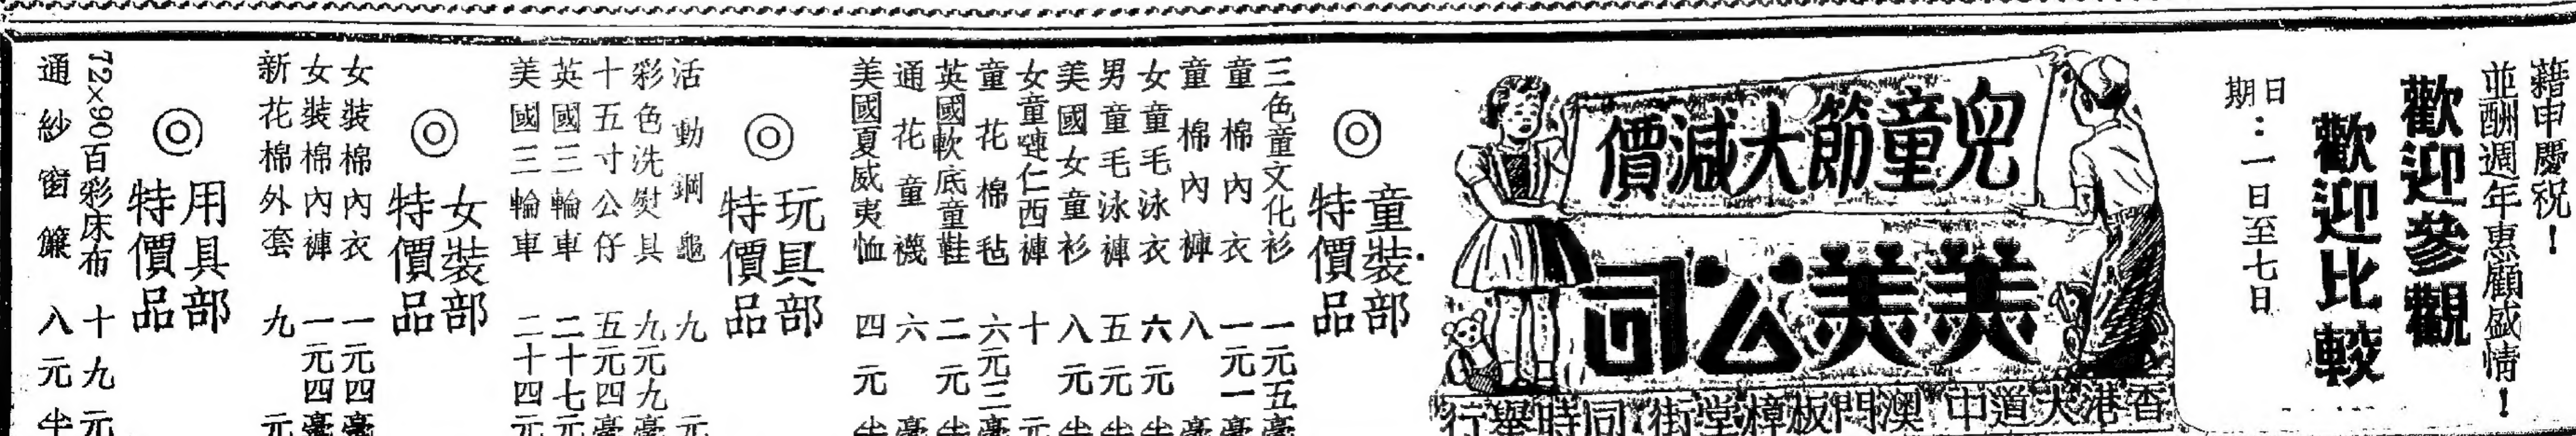 藉申慶祝！
並酬週年惠顧盛情！
歡迎參觀
歡迎比較
日期：一日至七日
兒童節大減價
美美公司
香港大道中 澳門板樟堂街 同時舉行
◎童裝部特價品
三色童文化衫 一元五毫
童棉內衣 一元一毫
童棉內褲 八毫
女童毛泳衣 六元半
男童毛泳褲 五元半
美國女童衫 八元半
女童嗹仁西褲 十元
童花棉毡 六元三毫
英國軟底童鞋 二元半
通花童襪 六毫
美國夏威夷恤 四元半
◎玩具部特價品
活動鋼龜 九元
彩色洗熨具 九元九毫
十五寸公仔 五元四毫
英國三輪車 二十七元
美國三輪車 二十四元
◎女裝部特價品
女裝棉內衣 一元四毫
女裝棉內褲 一元四毫
新花棉外套 九元
◎用具部特價品
72×90百彩床布 十九元
通紗窗簾 八元半